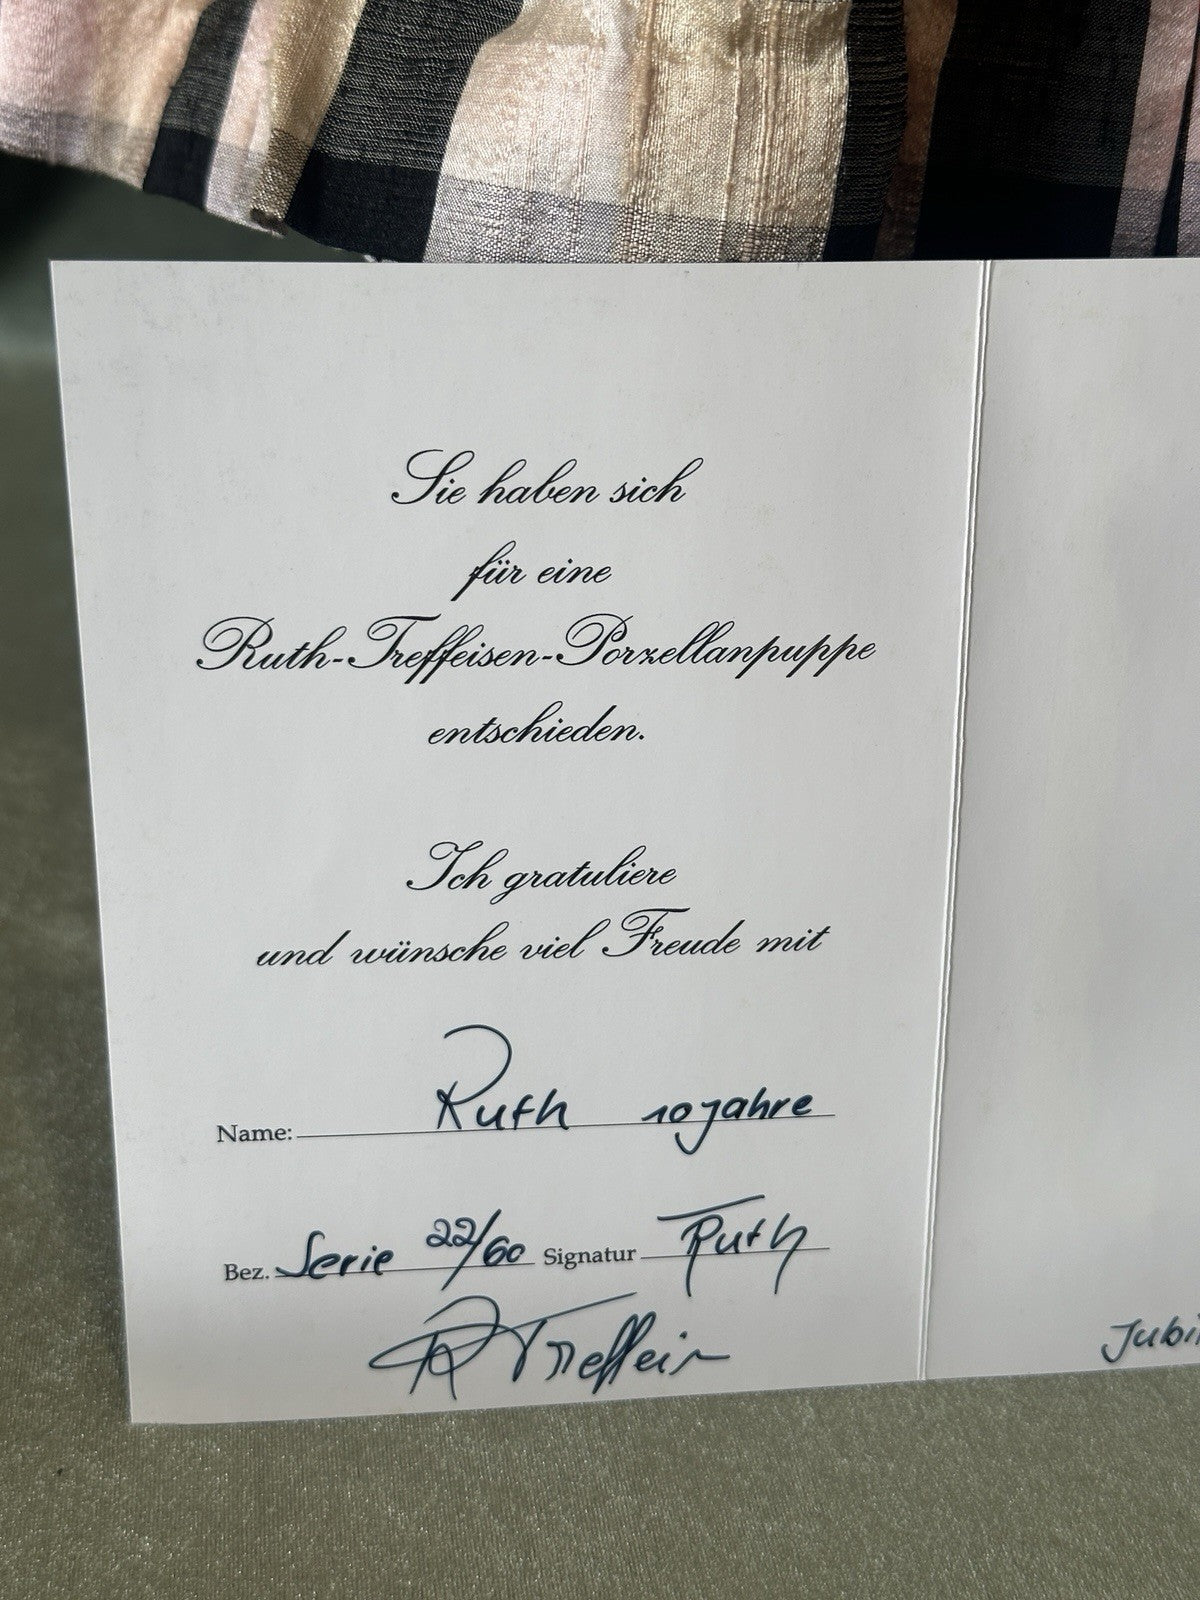 Sie haben sich
für eine
Ruth-Treffeisen-Porzellanpuppe
entschieden.
Ich gratuliere
und wünsche viel Freude mit
Name: Ruth 10 Jahre
Bez. Serie 22/60 Signatur Ruth
R Treffeisen
Jubi